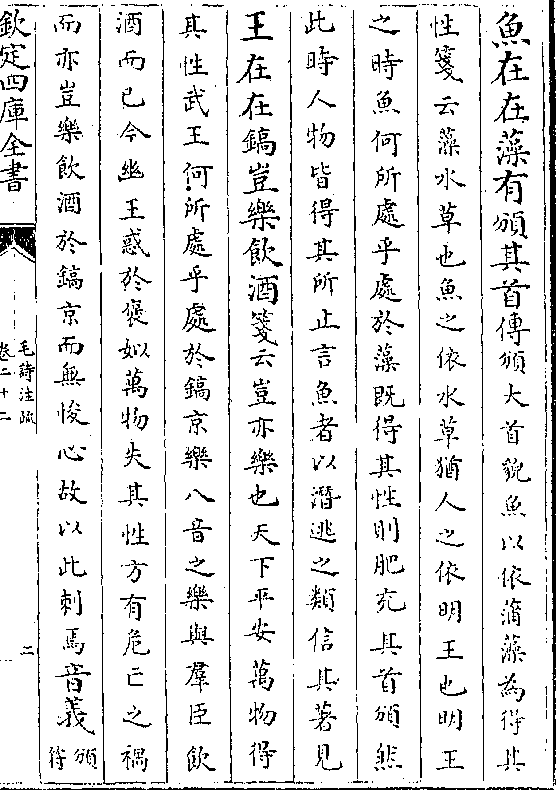 魚在在藻有頒其首傳頒大首貌魚以依蒲藻為得其
性箋云藻水草也魚之依水草猶人之依明王也明王
之時魚何所處乎處於藻既得其性則肥充其首頒然
此時人物皆得其所止言魚者以潛逃之類信其著見
王在在鎬豈樂飲酒箋云豈亦樂也天下平安萬物得
其性武王何所處乎處於鎬京樂八音之樂與羣臣飲
酒而已今幽王惑於褒姒萬物失其性方有危亡之禍
而亦豈樂飲酒於鎬京而無悛心故以此刺焉音義頒
符
欽定四庫全書
毛詩注疏
卷二十二
二